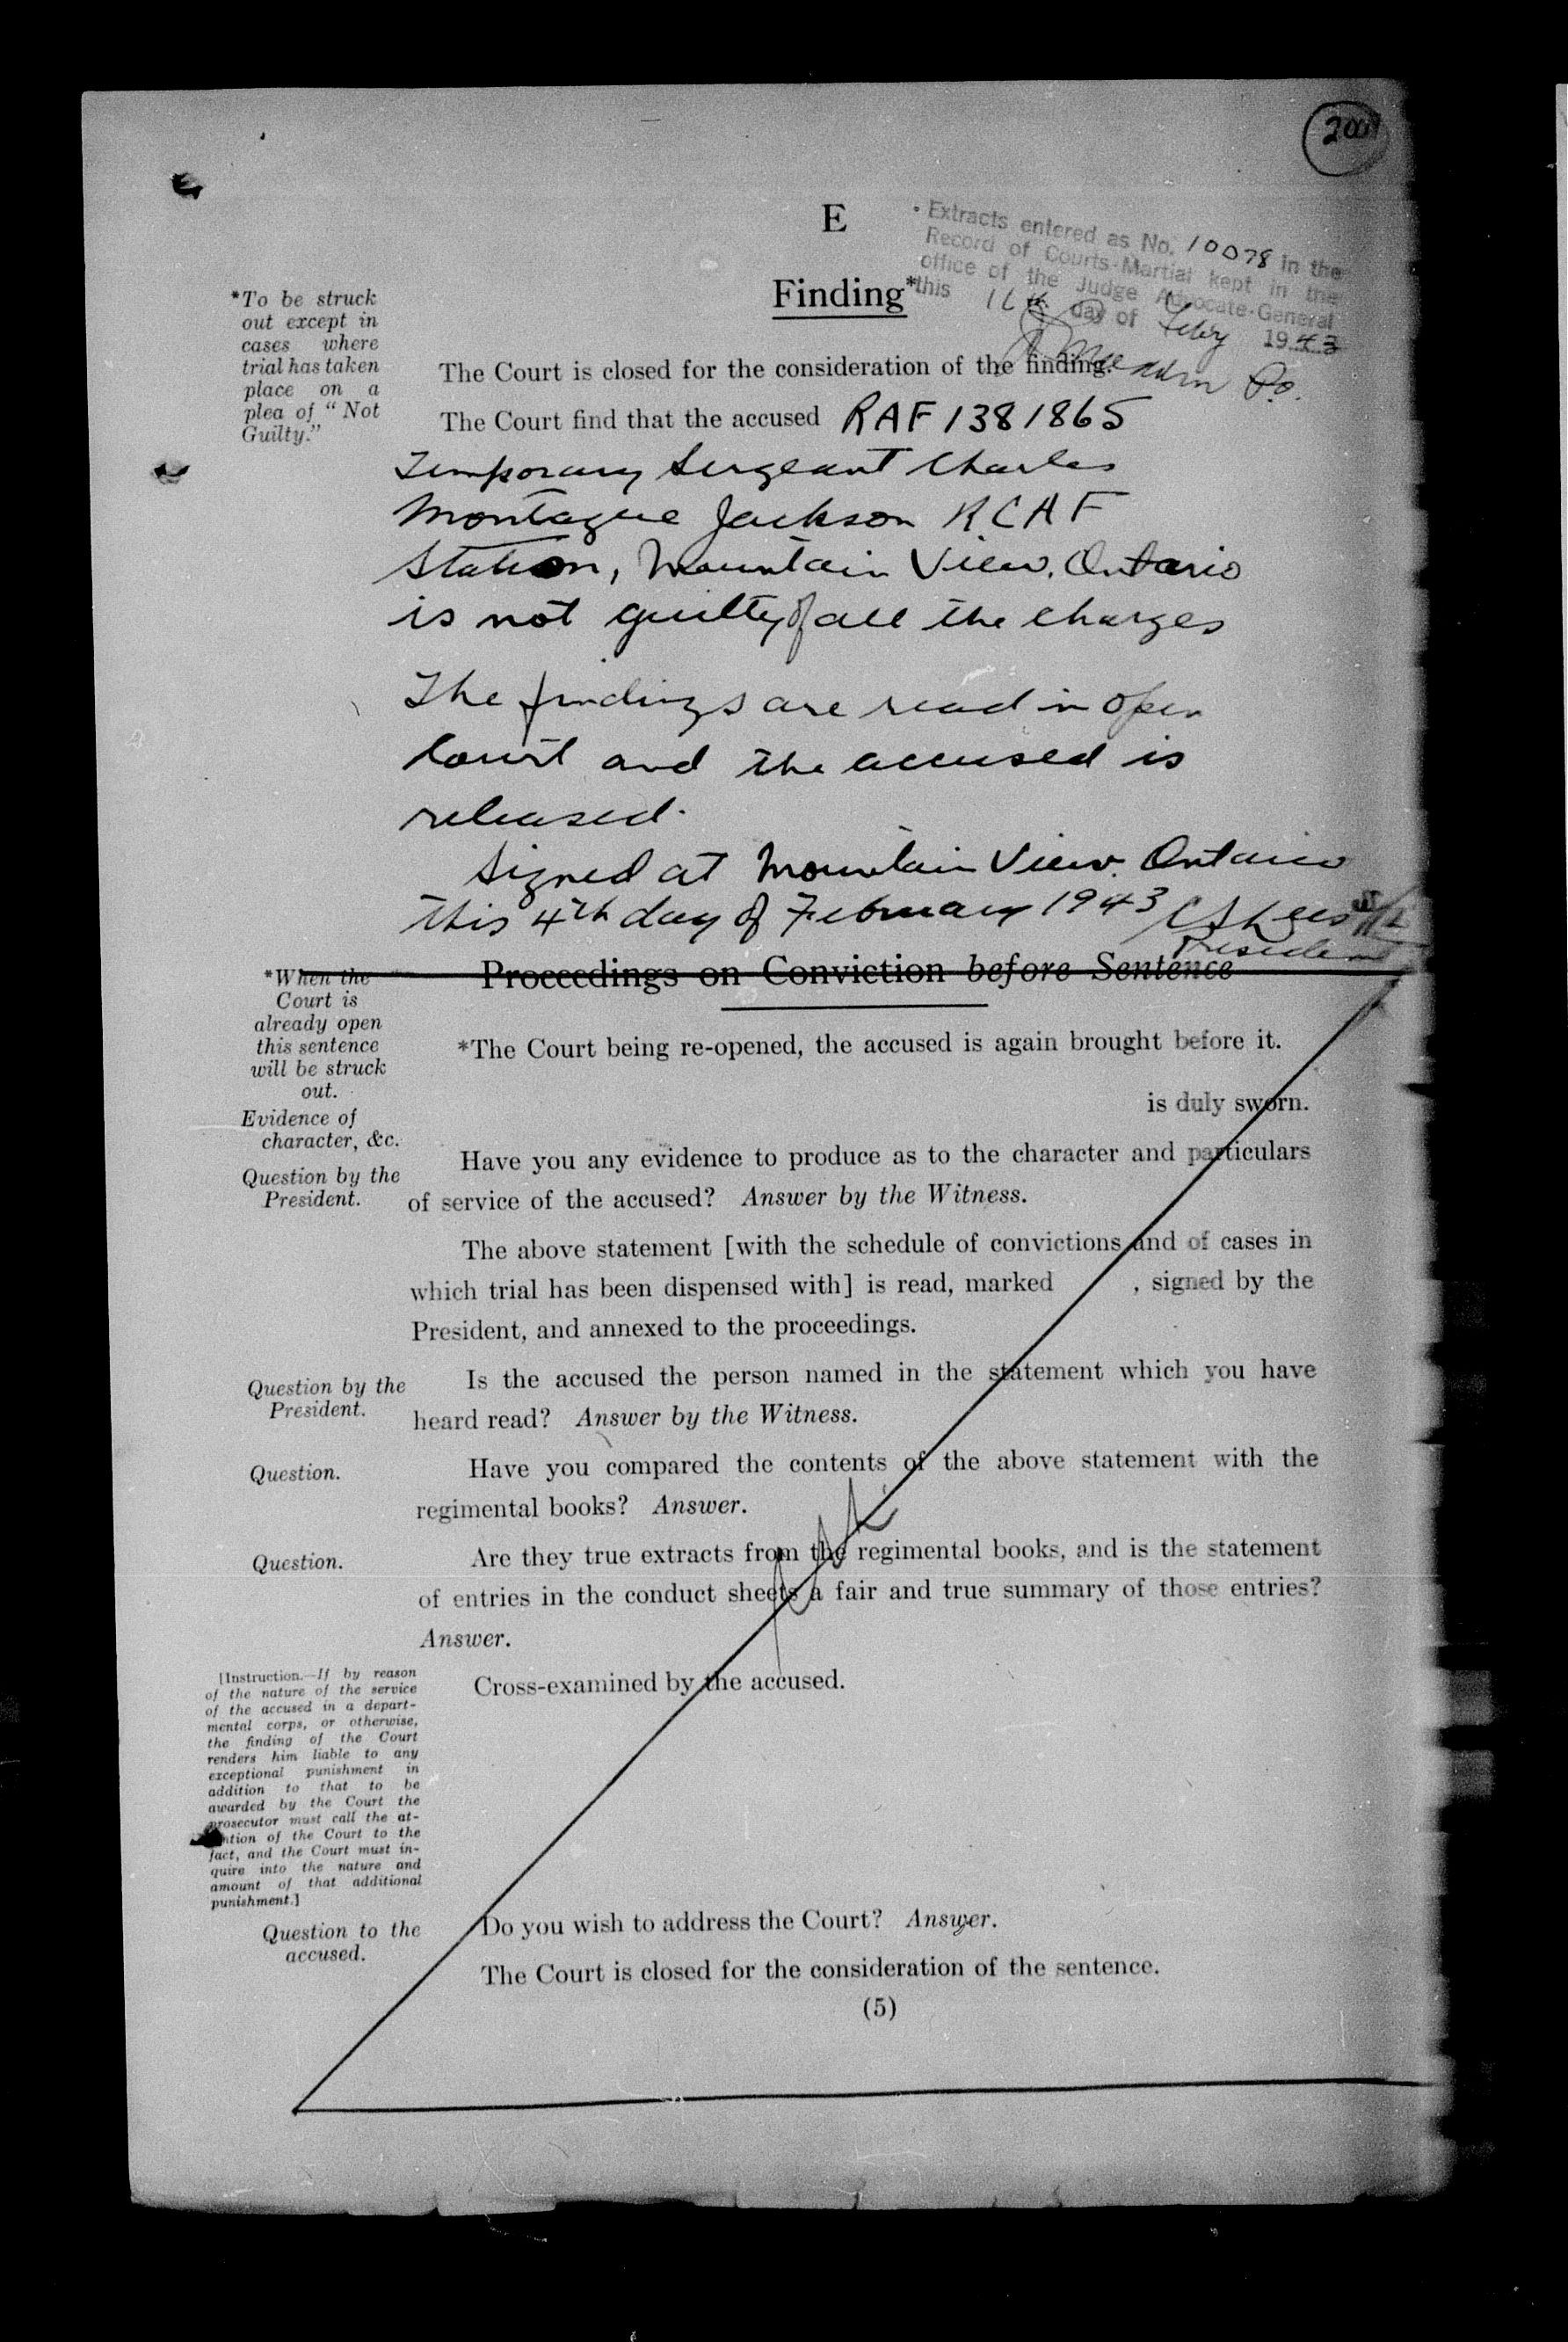 E
Extracts entered as No. 10078 in the
Record of Courts-Martial kept in the
office of the Judge Advocate-General
this day of Feby 1943
Finding*
*To be struck
out except in
cases where
trial has taken
place on a
plea of "Not
Guilty."
The Court is closed for the consideration of the finding.
The Court find that the accused RAF 1381865
Temporary Sergeant Charles
Montague Jackson RCAF
Station, Mountain View, Ontario
is not guilty of all the charges
The findings are read in open
Court and the accused is
released.
Signed at Mountain View, Ontario
this 4th day of February 1943
President
Proceedings on Conviction before Sentence
*When the
Court is
already open
this sentence
will be struck
out.
*The Court being re-opened, the accused is again brought before it.
is duly sworn.
Evidence of
character, &c.
Question by the
President.
Have you any evidence to produce as to the character and particulars
of service of the accused? Answer by the Witness.
The above statement [with the schedule of convictions and of cases in
which trial has been dispensed with] is read, marked , signed by the
President, and annexed to the proceedings.
Question by the
President.
Is the accused the person named in the statement which you have
heard read? Answer by the Witness.
Question.
Have you compared the contents of the above statement with the
regimental books? Answer.
Question.
Are they true extracts from the regimental books, and is the statement
of entries in the conduct sheets a fair and true summary of those entries?
Answer.
[Instruction.—If by reason
of the nature of the service
of the accused in a depart-
mental corps, or otherwise,
the finding of the Court
renders him liable to any
exceptional punishment in
addition to that to be
awarded by the Court the
prosecutor must call the at-
tention of the Court to the
fact, and the Court must in-
quire into the nature and
amount of that additional
punishment.]
Cross-examined by the accused.
Question to the
accused.
Do you wish to address the Court? Answer.
The Court is closed for the consideration of the sentence.
(5)